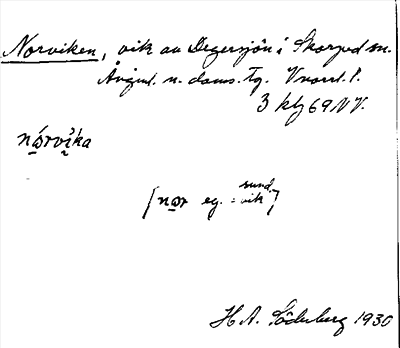 Norviken, vik av Degersjön i Skorped sn.
Ångml. n. doms. Tg. Vnorrl. l.
3 klg 69 NV.
nórvika
[nor eg. = sund, vik]
H A. Söderberg 1930